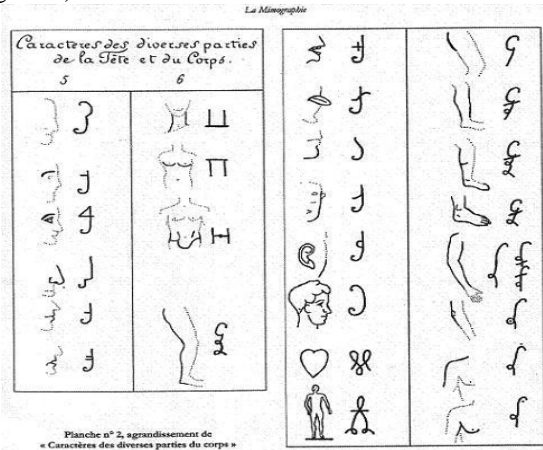 La Mimographie
Caractères des diverses parties
de la Tête et du Corps.
5 6
Planche n° 2, agrandissement de
« Caractères des diverses parties du corps »